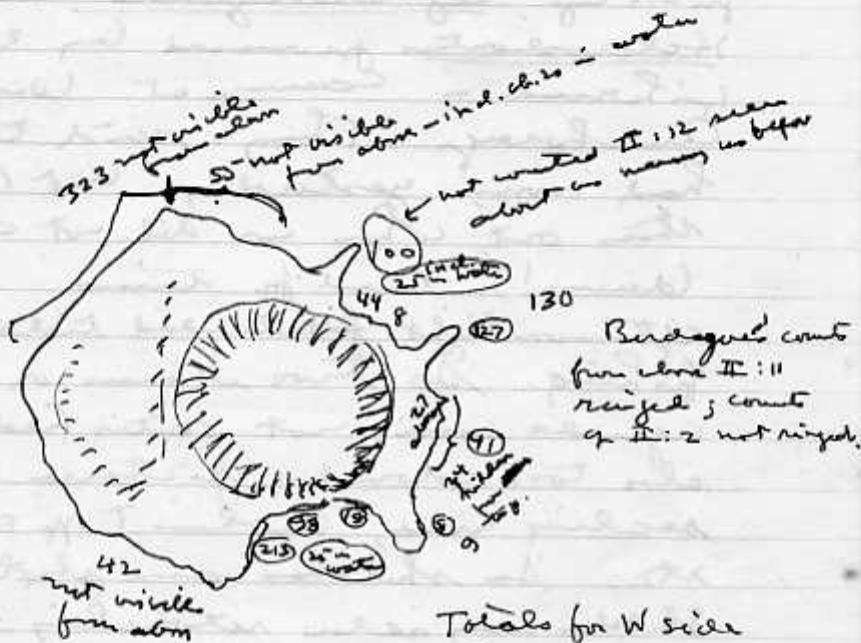 323 not visible
from above
55 not visible
from above – incl. ch. 20 in water
not counted II:12 seen
about as many as before
100
25 incl.
in water
448
130
127
Burdague's counts
from above II:11
ringed; counts
of II:2 not ringed.
27
along
41
34
hidden
from
8
9
98
18
213
25 in
water
42
not visible
from above
Totals for W side